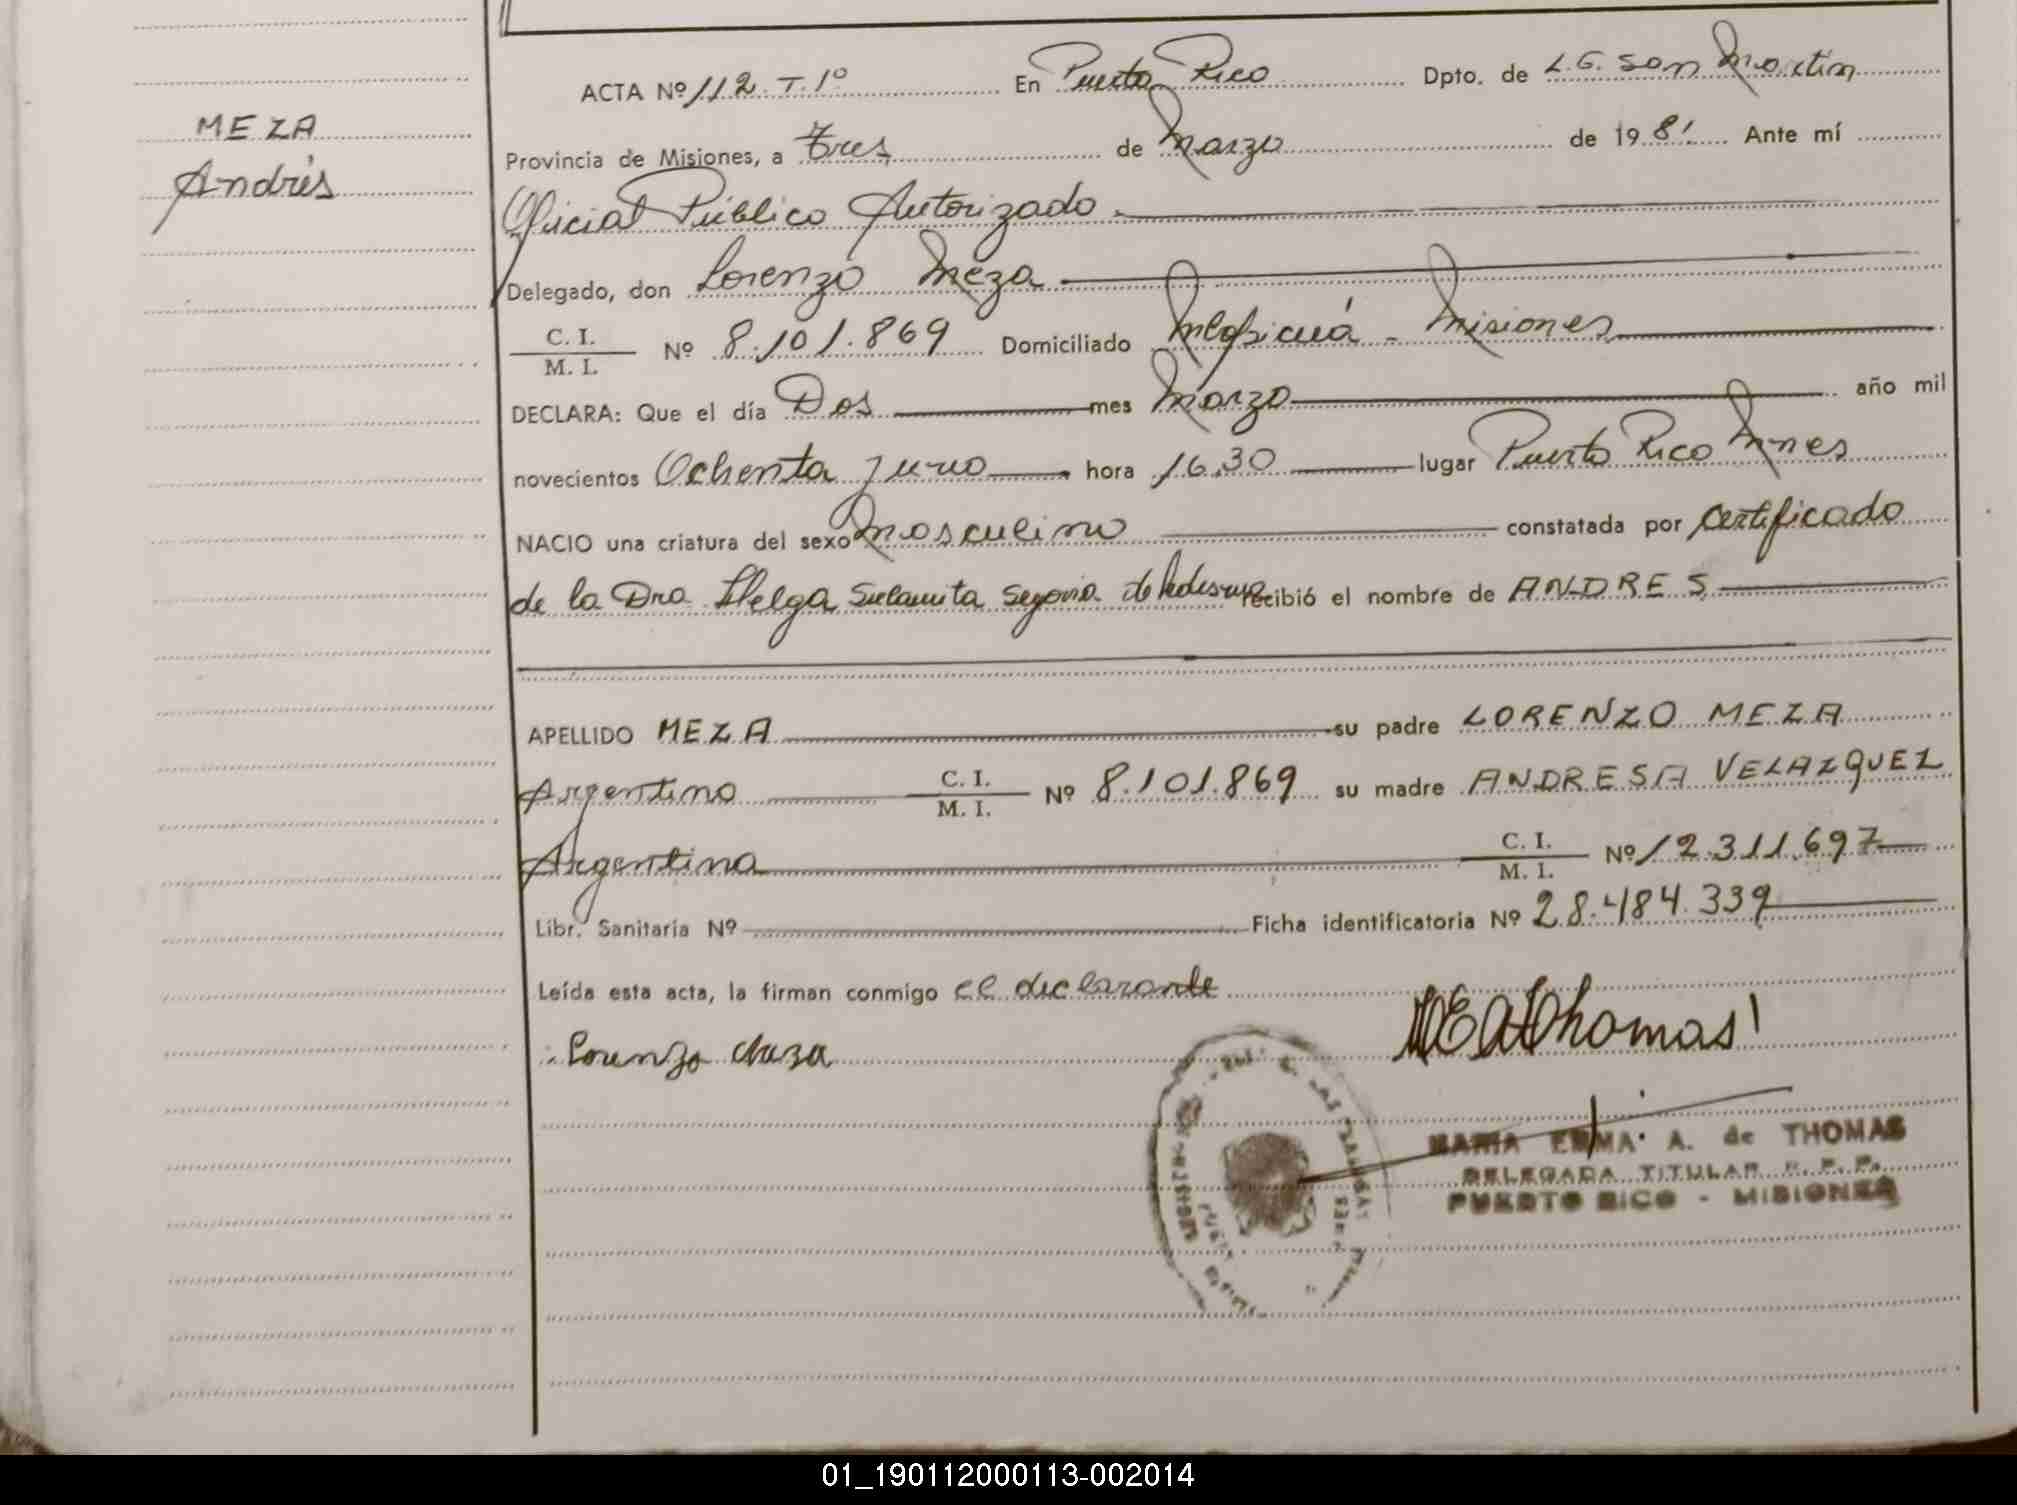 ACTA Nº 112 T. 1º En Puerto Rico Dpto. de L.G. San Martin
MEZA
Provincia de Misiones, a tres de Marzo de 1981 Ante mí
Andrés
Oficial Público Autorizado
Delegado, don Lorenzo Meza
C. I.
M. I. Nº 8.101.869 Domiciliado Mbopicuá - Misiones
DECLARA: Que el día Dos mes Marzo año mil
novecientos Ochenta y uno hora 16,30 lugar Puerto Rico Mnes
NACIO una criatura del sexo Masculino constatada por Certificado
de la Dra Helga Sulamita Segovia de recibió el nombre de ANDRES
APELLIDO MEZA su padre LORENZO MEZA
Argentino C. I.
M. I. Nº 8.101.869 su madre ANDRESA VELAZQUEZ
Argentina C. I.
M. I. Nº 12.311.697
Libr. Sanitaria Nº Ficha identificatoria Nº 28.484.339
Leída esta acta, la firman conmigo el declarante
Lorenzo Meza MEAThomas
MARIA EMMA A. de THOMAS
DELEGADA TITULAR R. P. P.
PUERTO RICO - MISIONES
01_190112000113-002014